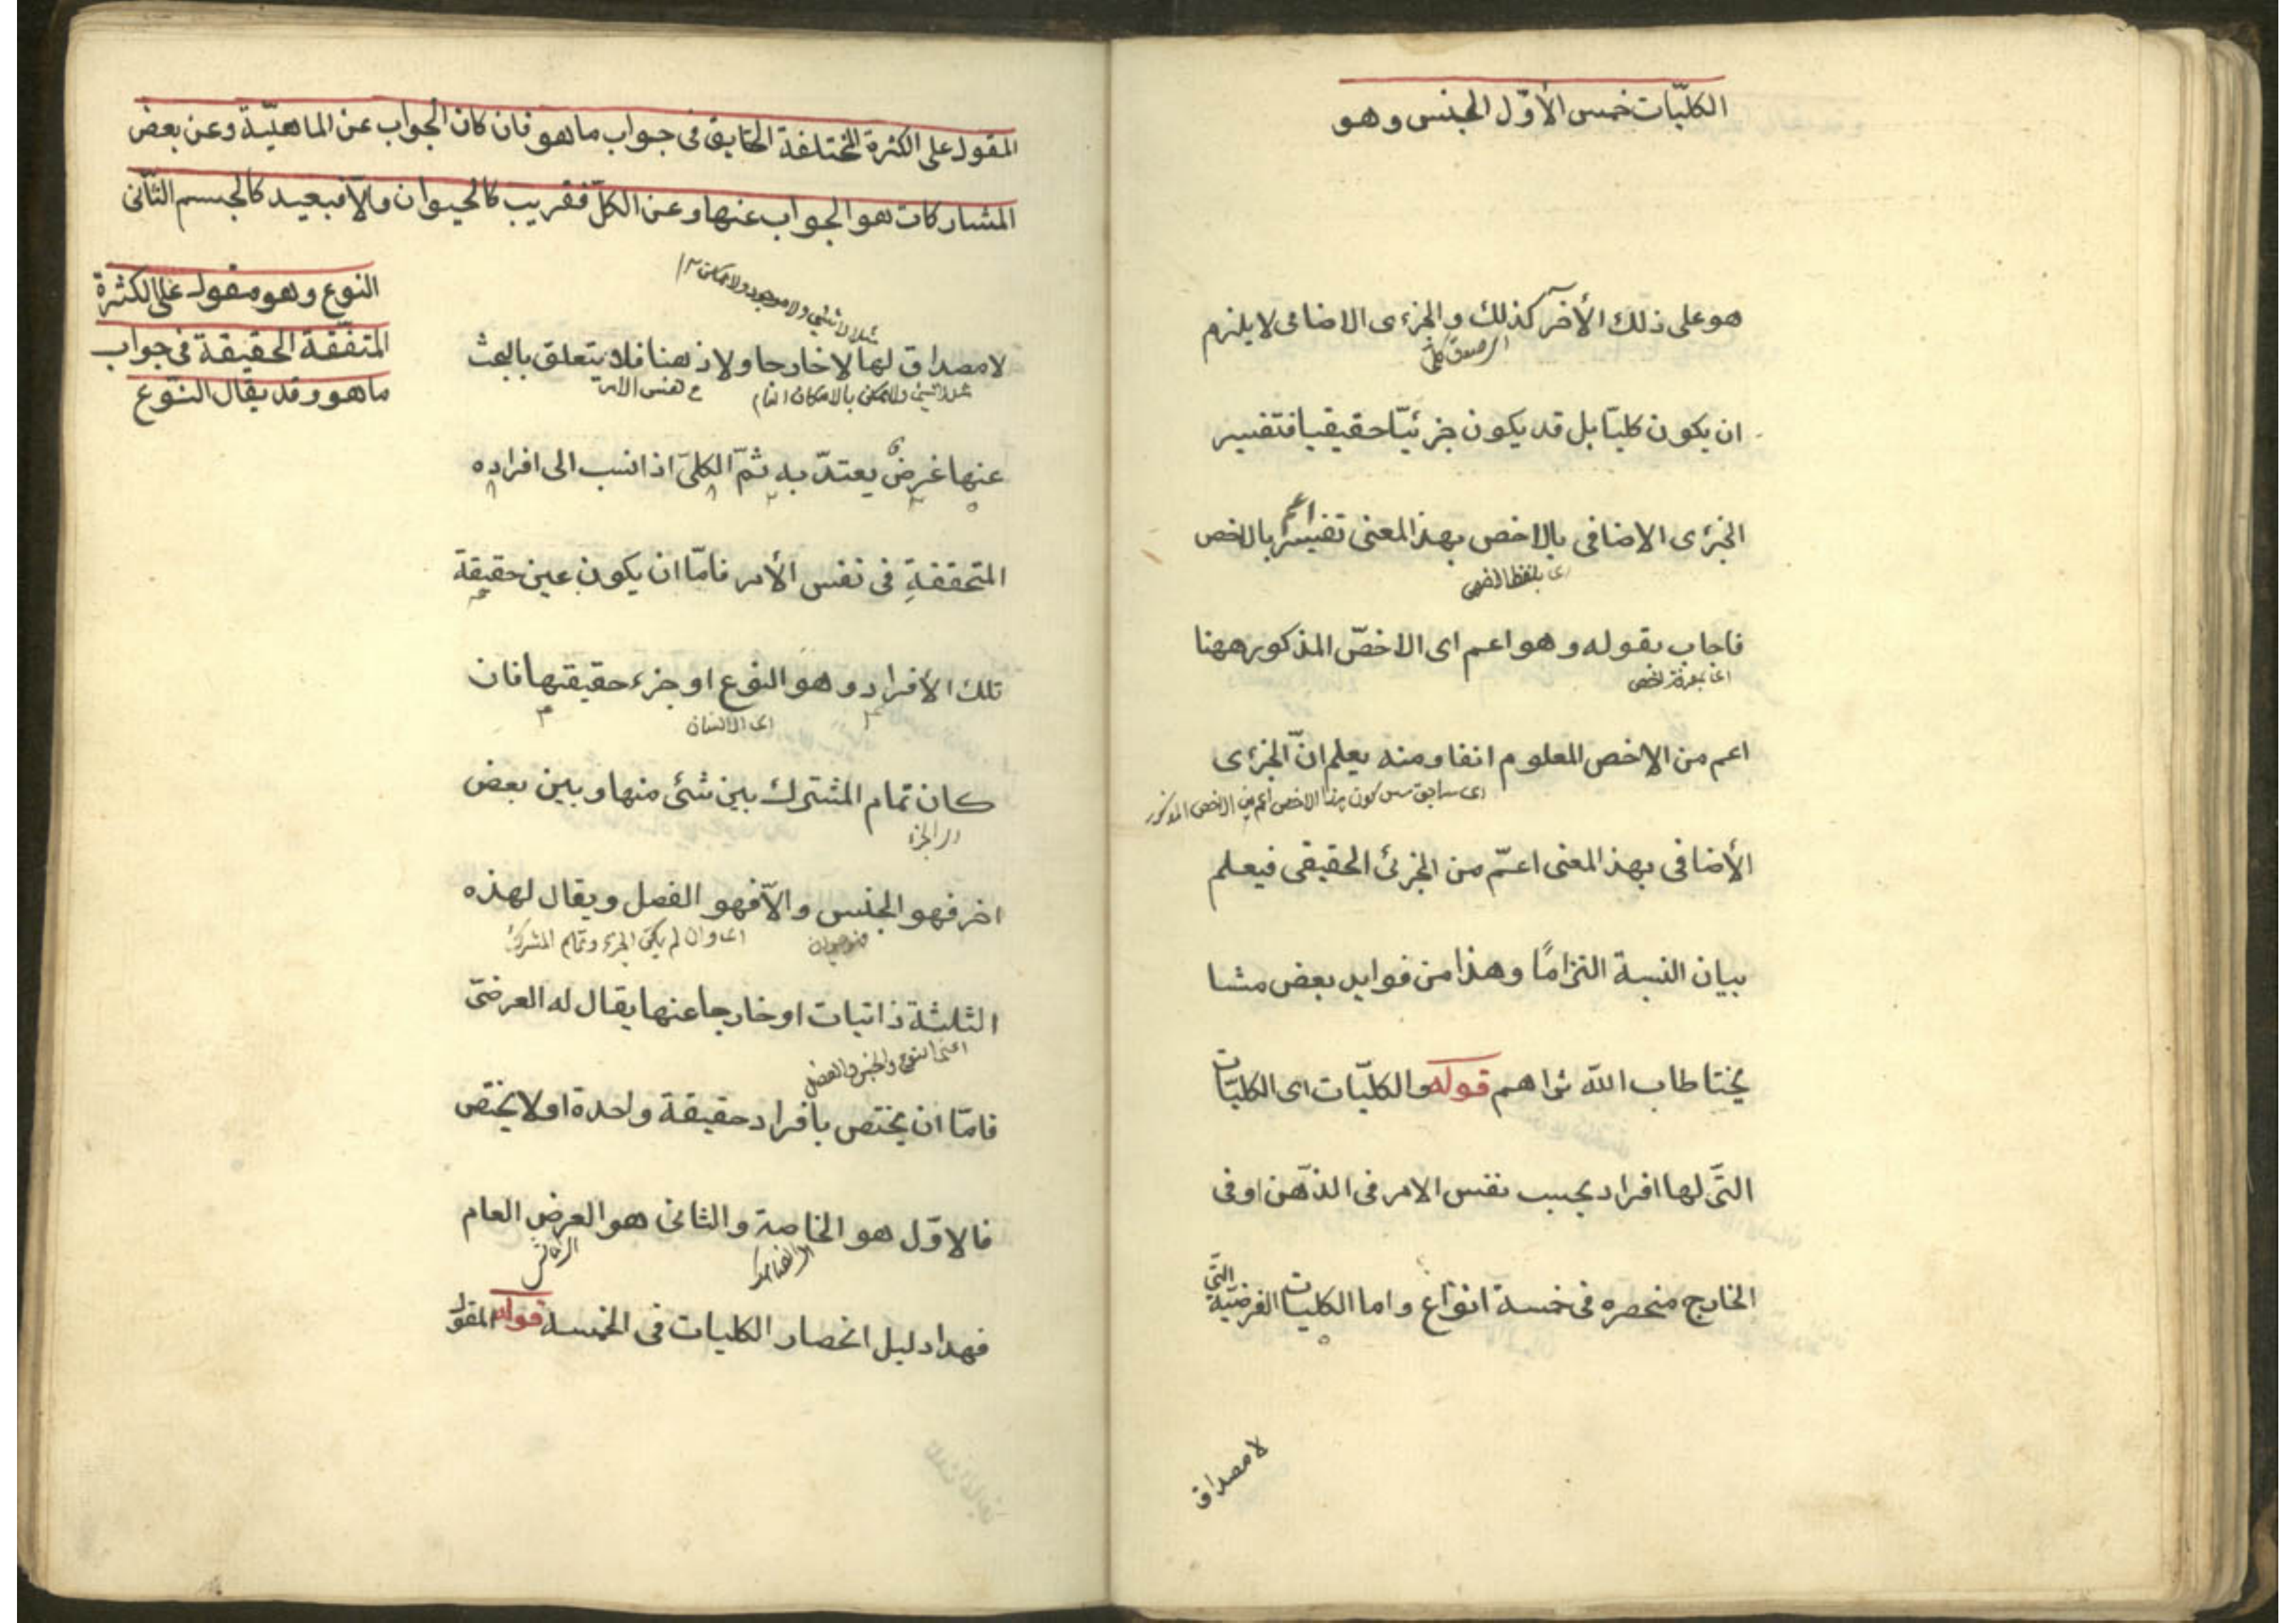 الكليّات خمس الأوّل الجنس وهو
هو على ذلك الأخر كذلك والجزءى الاضافى لا يلزم
ان يكون كليّا بل قد يكون جزئيّا حقيقيا فتفسير
الجزءى الاضافى بالاخص بهذ المعنى تفسير بالاخص
اعم
اى بلفظ الاخص
فاجاب بقوله وهو اعم اى الاخصّ المذكور ههنا
اعم من الاخص المعلوم انفا ومنه يعلم انّ الجزءى
الأضافى بهذ المعنى اعمّ من الجزئى الحقيقى فيعلم
بيان النسبة التزامًا وهذا من فوايد بعض مشا
يختا طاب اللّه ثراهم قوله والكليّات اى الكليّات
التّى لها افراد بحسب نفس الامر فى الذّهن او فى
الخارج منحصره فى خمسة انواع واما الكليات الفرضيّة التّى
لا مصداق
المقول على الكثرة المختلفة الحقايق فى جواب ما هو فان كان الجواب عن الماهيّة وعن بعض
المشاركات هو الجواب عنها وعن الكلّ فقريب كالحيوان والّا فبعيد كالجسم الثّانى
النوع وهو مقول على الكثرة
المتفّقة الحقيقة فى جواب
ما هو وقد يقال النّوع
لا مصداق لها لا خارجا ولا ذهنا فلا يتعلق بالبحث
عنها غرض يعتدّ به ثمّ الكلىّ اذا نسب الى افراده
المتحققةِ فى نفس الأمر فامّا ان يكون عين حقيقة
تلك الأفراد وهو النوع او جزء حقيقتها فان
اى الانسان
كان تمام المشترك بين شئ منها وبين بعض
اى الجزء
اخر فهو الجنس والّا فهو الفصل ويقال لهذه
اى وان لم يكن الجزء تمام المشترك
الثلثة ذاتيات او خارجا عنها يقال له العرضىّ
اعنى النوع والجنس والفصل
فامّا ان يختص بافراد حقيقة واحدة او لا يختص
فالاوّل هو الخاصة والثانى هو العرض العام
فهذا دليل انحصار الكليات فى الخمسة قوله المقول